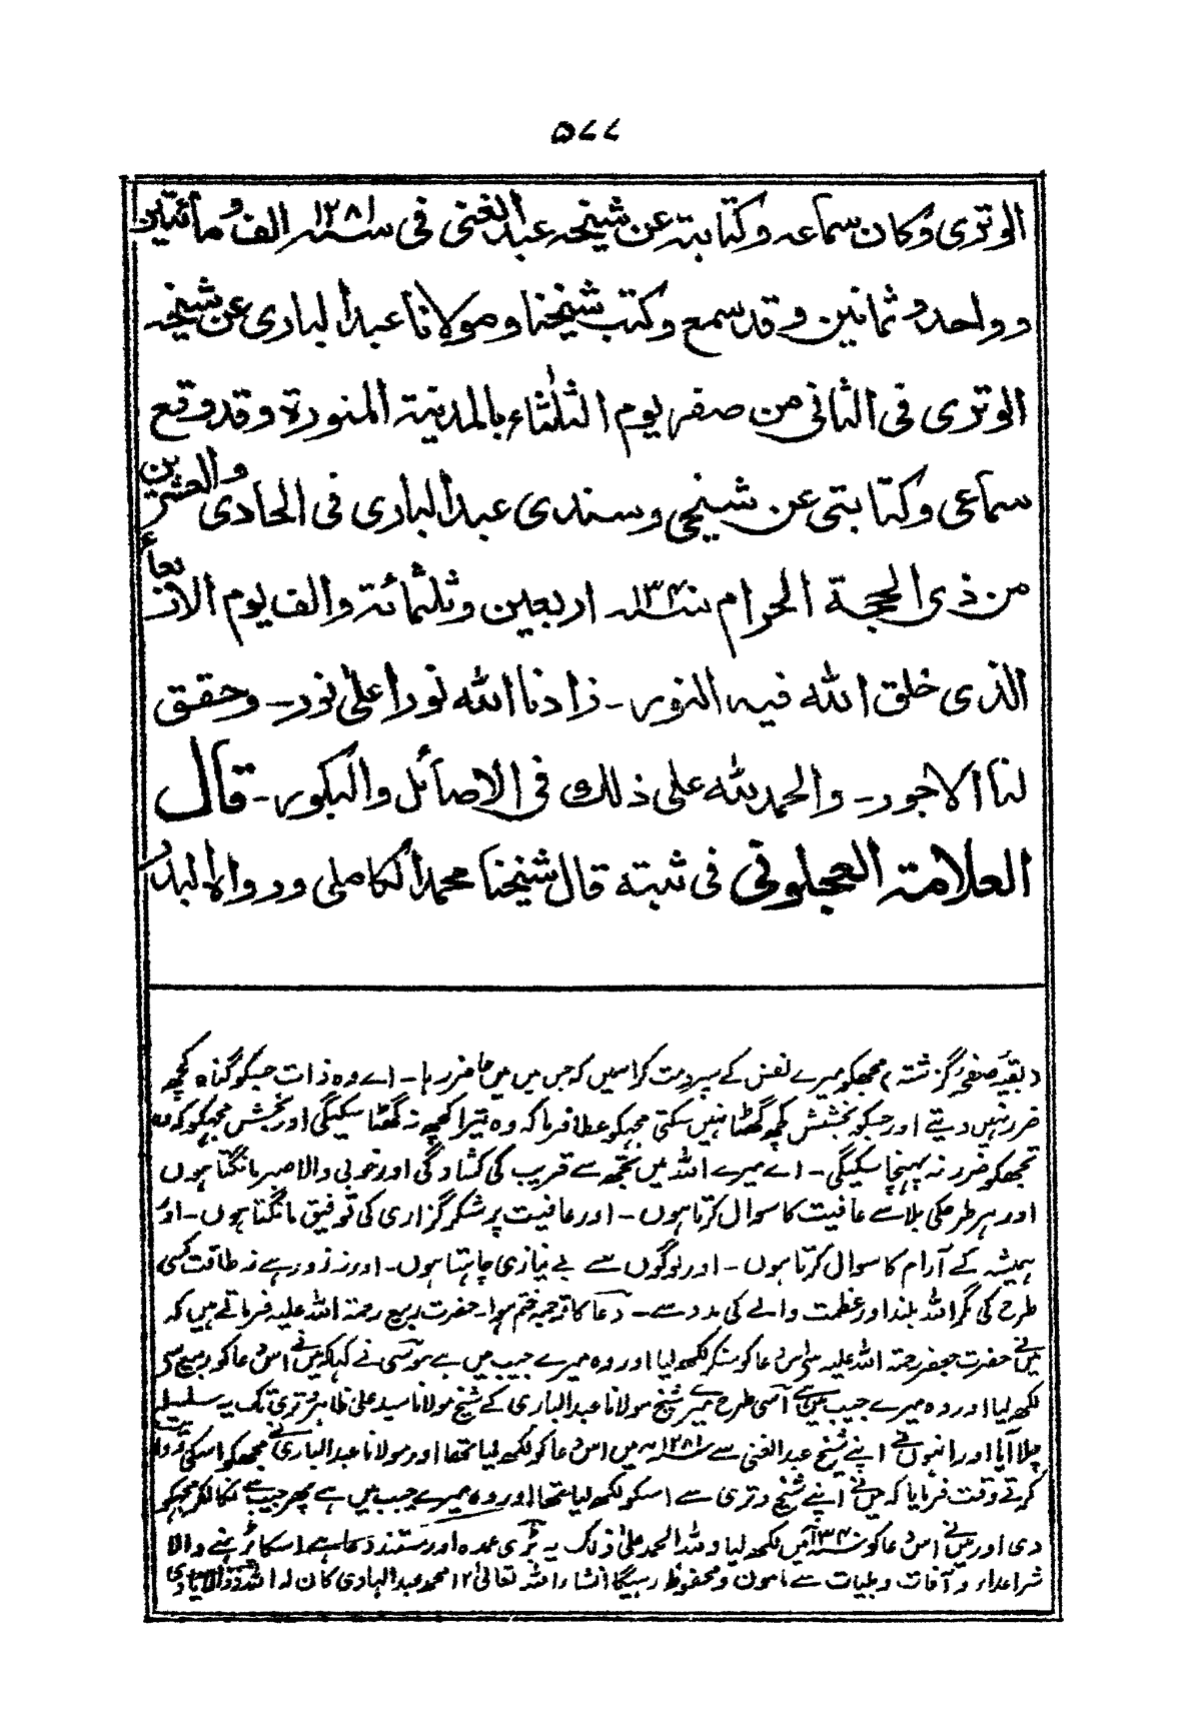 ۵۷۷
الوتری وکان سماعہ وکتابتہ عن شیخہ عبد الغنی فی سنہ ۱۲۸۱ الف ومأتین
وواحد وثمانین وقد سمع وکتب شیخنا ومولانا عبد الباری عن شیخہ
الوتری فی الثانی من صفر یوم الثلثاء بالمدینۃ المنورۃ وقد وقع
سماعی وکتابتی عن شیخی وسندی عبد الباری فی الحادی والعشرین
من ذی الحجۃ الحرام سنہ ۱۳۴۰ اربعین وثلثمائۃ والف یوم الاربعاء
الذی خلق اللہ فیہ النور۔ زادنا اللہ نورا علی نور۔ وحقق
لنا الاجور۔ والحمد للہ علی ذلک فی الاصائل والبکور۔ قال
العلامۃ العجلونی فی ثبتہ قال شیخنا محمد الکاملی ورواہ البدر
(بقیہ صفحہ گزشتہ) مجھکو میرے نفس کے سپرد مت کر اسمیں کہ جس میں میں حاضر رہا۔ اے وہ ذات جسکو گناہ کچھ
ضرر نہیں دیتے اور جسکو بخشش کچھ گھٹا نہیں سکتی مجھکو عطا فرما کہ وہ تیرا کچھ نہ گھٹا سکیگی اور بخش مجھکو کہ وہ
تجھکو ضرر نہ پہنچا سکیگی۔ اے میرے اللہ میں تجھ سے قریب کی کشادگی اور خوبی والا صبر مانگتا ہوں
اور ہر طرحکی بلا سے عافیت کا سوال کرتا ہوں۔ اور عافیت پر شکر گزاری کی توفیق مانگتا ہوں۔ اور
ہمیشہ کے آرام کا سوال کرتا ہوں۔ اور لوگوں سے بے نیازی چاہتا ہوں۔ اور نہ زور ہے نہ طاقت کسی
طرح کی مگر اللہ بلند اور عظمت والے کی مدد سے۔ دعا کا ترجمہ ختم ہوا۔ حضرت ربیع رحمۃ اللہ علیہ فرماتے ہیں کہ
میں نے حضرت جعفر رحمۃ اللہ علیہ سے اس دعا کو سنکر لکھ لیا اور وہ میرے جیب میں ہے موسی نے کہا کہ میں نے اس دعا کو ربیع سے
لکھ لیا اور وہ میرے جیب میں ہے اسی طرح میرے شیخ مولانا عبد الباری کے شیخ مولانا سید علی ظاہر وتری تک یہ سلسلہ
چلا آیا اور انہوں نے اپنے شیخ عبد الغنی سے سنہ ۱۲۸۱ میں اس دعا کو لکھ لیا تھا اور مولانا عبد الباری نے مجھکو اسکی روایت
کرتے وقت فرمایا کہ میں نے اپنے شیخ وتری سے اسکو لکھ لیا تھا اور وہ میرے جیب میں ہے پھر جیب سے نکالکر مجھکو
دی اور میں نے اس دعا کو سنہ ۱۳۴۰ میں لکھ لیا وللہ الحمد علیٰ ذلک یہ بڑی عمدہ اور مستند دعا ہے اسکا پڑہنے والا
شر اعداء و آفات و بلیات سے مامون و محفوظ رہیگا انشاء اللہ تعالیٰ ۱۲ محمد عبد الہادی کان لہ اللہ ذو الایادی